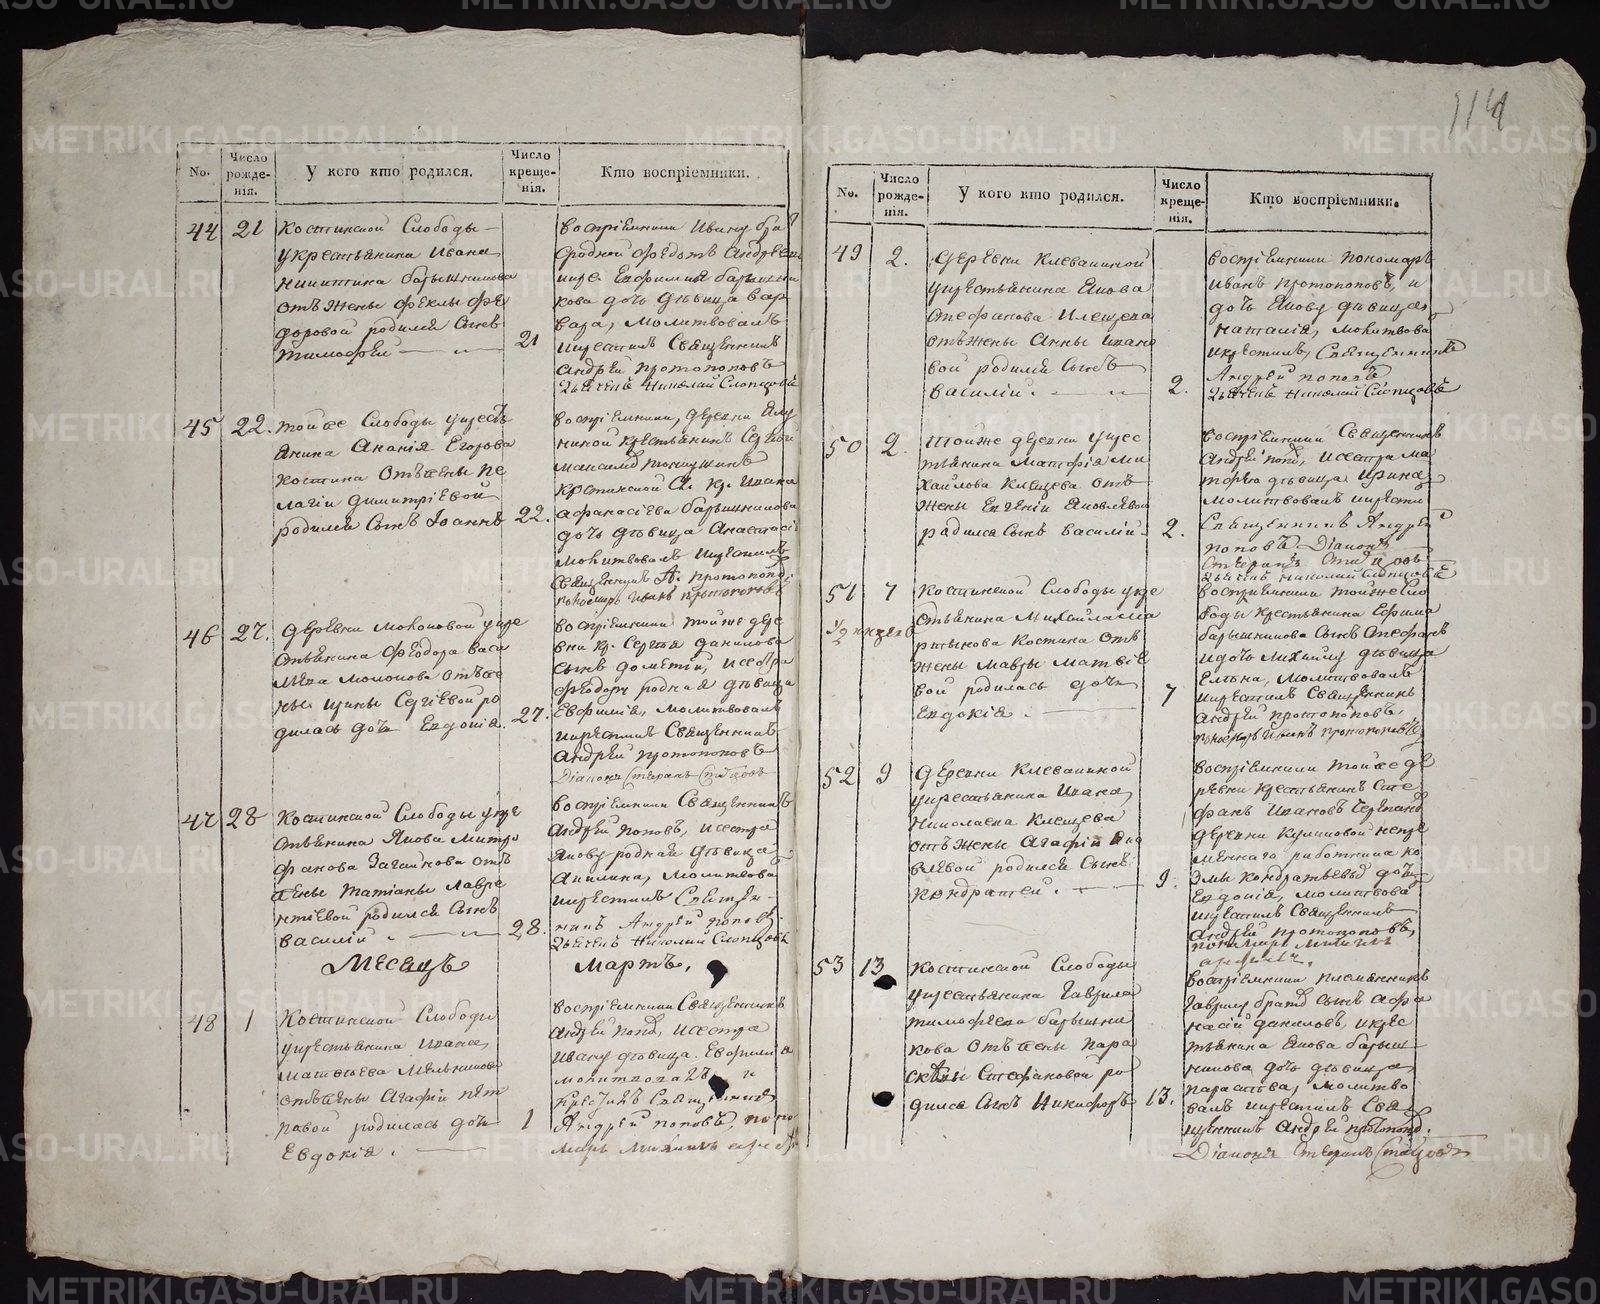 METRIKI.GASO-URAL.RU
114
No.
Число рожденія.
У кого кто родился.
Число крещенія.
Кто воспріемники.
44
21
Костинской Слободы
укрестьянина Ивана
Никитина Барышникова
отъ Жены Феклы Фе
доровой родился сынъ
Тимофей
21
воспріемники Ивану бра
молитвовалъ
икрестилъ Священникъ
Андрей Протопоповъ
Дьячекъ Николай Слопцовъ
45
22.
Тойже Слободы укресть
янина Ананія Егорова
Костина отъжены Пе
лагіи Димитріевой
родился сынъ Іоаннъ
22.
воспріемники, деревни
крестьянинъ Сергей
Костинской Сл. кр. Ивана
Афанасіева Барышникова
дочь девица Анастасі
молитвовалъ икрестилъ
Священникъ А. Протопопо
пономарь Иванъ Протопоповъ
46
27.
Деревни Мохоновой укре
стьянина Феодора Васи
отъже
ны Ирины Сергіевой ро
дилась дочь Евдокія
27.
воспріемники тойже дере
вни кр. Сергея Данилова
сынъ Дометій, исестра
Феодору родная девица
Евфимія, молитвовалъ
икрестилъ Священникъ
Андрей Протопоповъ
47
28
Костинской Слободы укре
стьянина Якова Митро
фанова Загайнова отъ
жены Татіаны Лавре
нтіевой родился сынъ
Василій
28.
воспріемники Священникъ
Андрей Поповъ, исестра
Якову родная девица
Акилина, молитвова
икрестилъ Священ
никъ Андрей Поповъ
Дьячекъ Николай Слопцовъ
Месяцъ
Мартъ,
48
1
Костинской Слободы
укрестьянина Ивана
Матвеева Мельникова
отъжены Агафіи
родилась дочь
Евдокія.
1
воспріемники Священникъ
Андрей Попо, исестра
Ивану девица Евфимія
молитвовалъ и
крестилъ Священникъ
Андрей Поповъ, поно
марь
No.
Число рожденія.
У кого кто родился.
Число крещенія.
Кто воспріемники.
49
2.
Деревни Клевакиной
укрестьянина Якова
Стефанова Клещева
отъжены Анны Ивано
вой родился сынъ
Василій.
2.
воспріемники пономарь
Иванъ Протопоповъ, и
дочь Якову девица
Наталія, молитвова
икрестилъ, Священникъ
Андрей Поповъ
Дьячекъ Николай Слопцовъ
50
2.
Тойже деревни укрес
тьянина Матфія Ми
хайлова Клещева отъ
жены Евгеніи Яковлевой
родился сынъ Василій
2.
воспріемники Священникъ
Андрей Попо, исестра Ма
тфею девица Ирина,
молитвовалъ икрести
Священникъ Андрей
Поповъ Діаконъ
Дьячекъ Николай Слопцовъ
51
7
Костинской Слободы укре
стьянина Михаила Ма
ртынова Костина отъ
жены Мавры Матвіе
вой родилась дочь
Евдокія.
7
воспріемники тойже Сло
боды крестьянина Ефима
Барышникова сынъ Стефанъ
идочь Михаилу девица
Елена, молитвовалъ
икрестилъ Священникъ
Андрей Протопоповъ,
пономарь Иванъ Протопоповъ
52
9
Деревни Клевакиной
укрестьянина Ивана
Николаева Клещева
отъ жены Агафіи Яко
влевой родился сынъ
Кондратей.
9.
воспріемники тойже де
ревни крестьянинъ Сте
фанъ Ивановъ
деревни Куликовой непре
меннаго работника Ко
змы Кондратьевы дочь
Евдокія, молитвова
икрестилъ Священникъ
Андрей Протопоповъ,
53
13
Костинской Слободы
укрестьянина Гаврила
Тимофеева Барышни
кова отъ жены Пара
скевы Стефановой ро
дился сынъ Никифоръ
13.
воспріемники племянникъ
Гаврилу брата сынъ Афа
насій Даниловъ, икрес
тьянина Якова Барыш
никова дочь девица
Парасковья, молитво
валъ икрестилъ Свя
щенникъ Андрей Протопо.